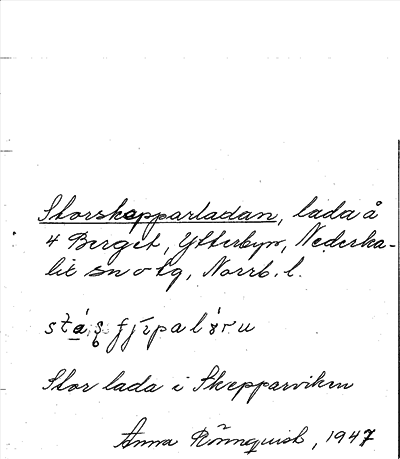 Storskepparladan, lada å
4 Berget, Ytterbyn, Nederka-
lix sn o tg, Norrb. l.
Stor lada i Skepparviken
Anna Rönnquist, 1947